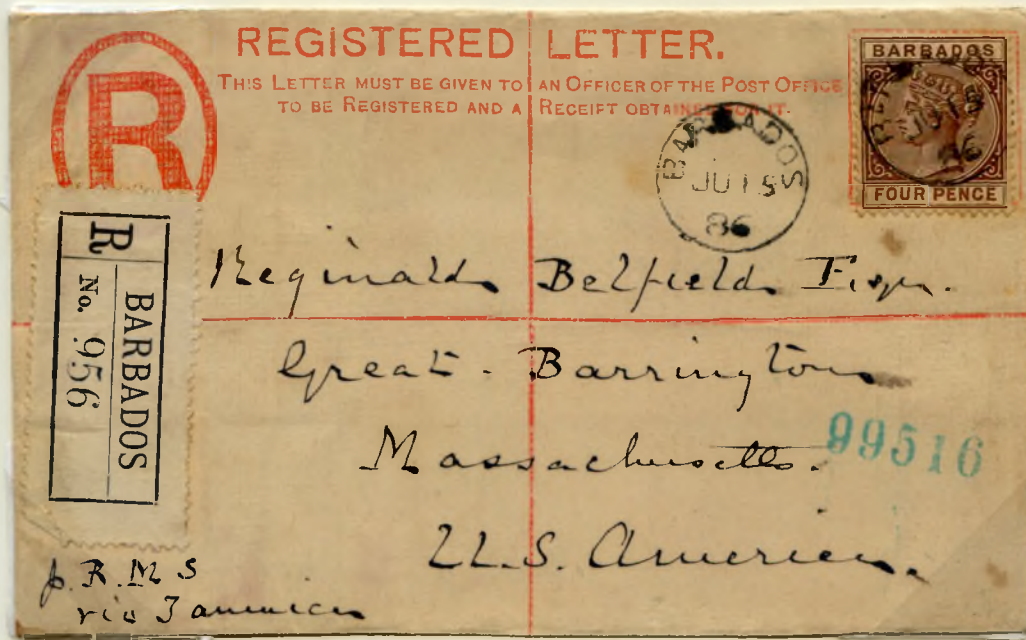 REGISTERED LETTER.
THIS LETTER MUST BE GIVEN TO AN OFFICER OF THE POST OFFICE
TO BE REGISTERED AND A RECEIPT OBTAINED FOR IT.
R
BARBADOS
FOUR PENCE
BARBADOS
JU 15
86
R
No. 956
BARBADOS
Reginald Belfield Esqr.
Great-Barrington
Massachusetts.
99516
U.S. America.
p. R.M S
via Jamaica